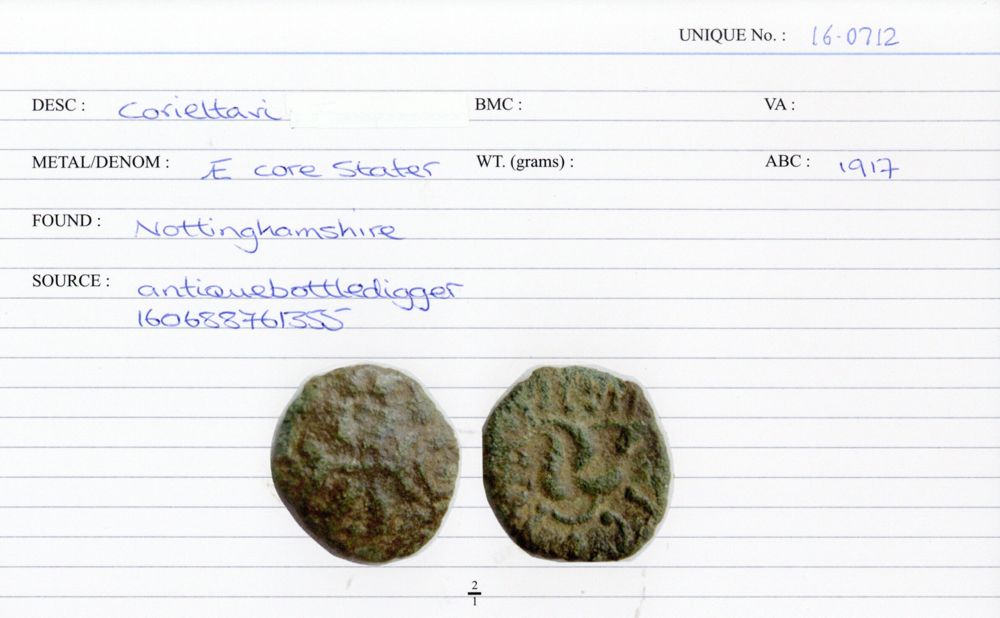 UNIQUE No. : 16-0712
DESC : Corieltavi BMC : VA :
METAL/DENOM : Æ core Stater WT. (grams) : ABC : 1917
FOUND : Nottinghamshire
SOURCE : antiquebottledigger
160688761355
2
1